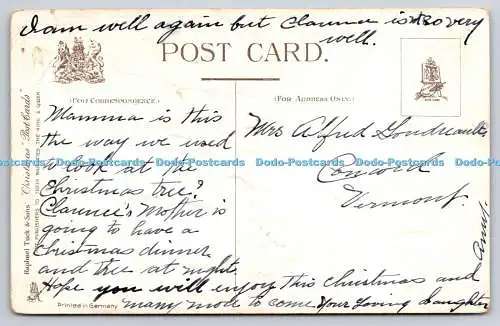 I am well again but Clarence is not so very
well.
POST CARD.
(FOR CORRESPONDENCE.)
(FOR ADDRESS ONLY.)
Mamma is this
the way we used
to look at the
Christmas tree?
Clarence's Mother is
going to have a
Christmas dinner
and tree at night.
Hope you will enjoy this Christmas and
many more to come. Your Loving daughter
Amy.
Mrs Alfred
Concord
Vermont.
Raphael Tuck & Sons' "Christmas" Post Cards
PUBLISHERS TO THEIR MAJESTIES THE KING & QUEEN
Printed in Germany
Dodo-Postcards Dodo-Postcards Dodo-Postcards Dodo-Postcards Dodo-Postcards Dodo-Postcards